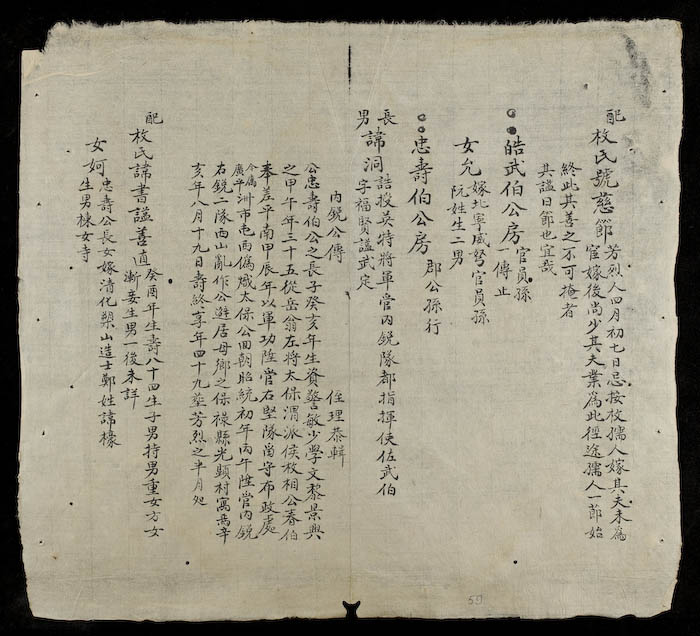 配
枚氏號慈節 芳烈人四月初七日忌按枚孺人嫁其夫未爲
宦嫁後尚少其夫業爲此徑途孺人一節始
終此其善之不可掩者
其謚曰節也宜哉
皓武伯公房 官員孫
一傳止
女允 嫁北寧威弩官員孫
阮姓生二男
忠壽伯公房 郡公孫行
長男 諱洞 誥授英特將軍管內銳隊都指揮使佐武伯
字福賢謚武定
內銳公傳 侄理恭輯
公忠壽伯公之長子癸亥年生資警敏少學文黎景興
之甲午年三十五從岳翁左將太保渭派侯枚相公春伯
奉差平南甲辰年以軍功陞管右堅隊留守布政處
今屬廣平洲市屯西僞熾太保公回朝昭統初年丙午陞管內銳
右銳二隊西山亂作公避居母鄉之保祿縣光顯村寓焉辛
亥年八月十九日壽終享年四十九塟芳烈之半月处
配
枚氏諱書謚善直 癸酉年生壽八十四生子男持男重女方女
漸妾生男一後未詳
女妸 忠壽公長女嫁清化㮋山造士鄭姓諱檺
生男棟女寺
59